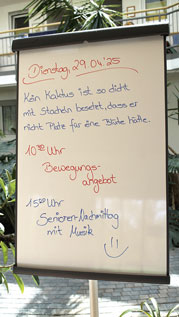 Dienstag, 29.04.'25
Kein Kaktus ist so dicht
mit Stacheln besetzt, dass er
nicht Platz für eine Blüte hätte.
10³⁰ Uhr
Bewegungs-
angebot
15⁰⁰ Uhr
Senioren-Nachmittag
mit Musik